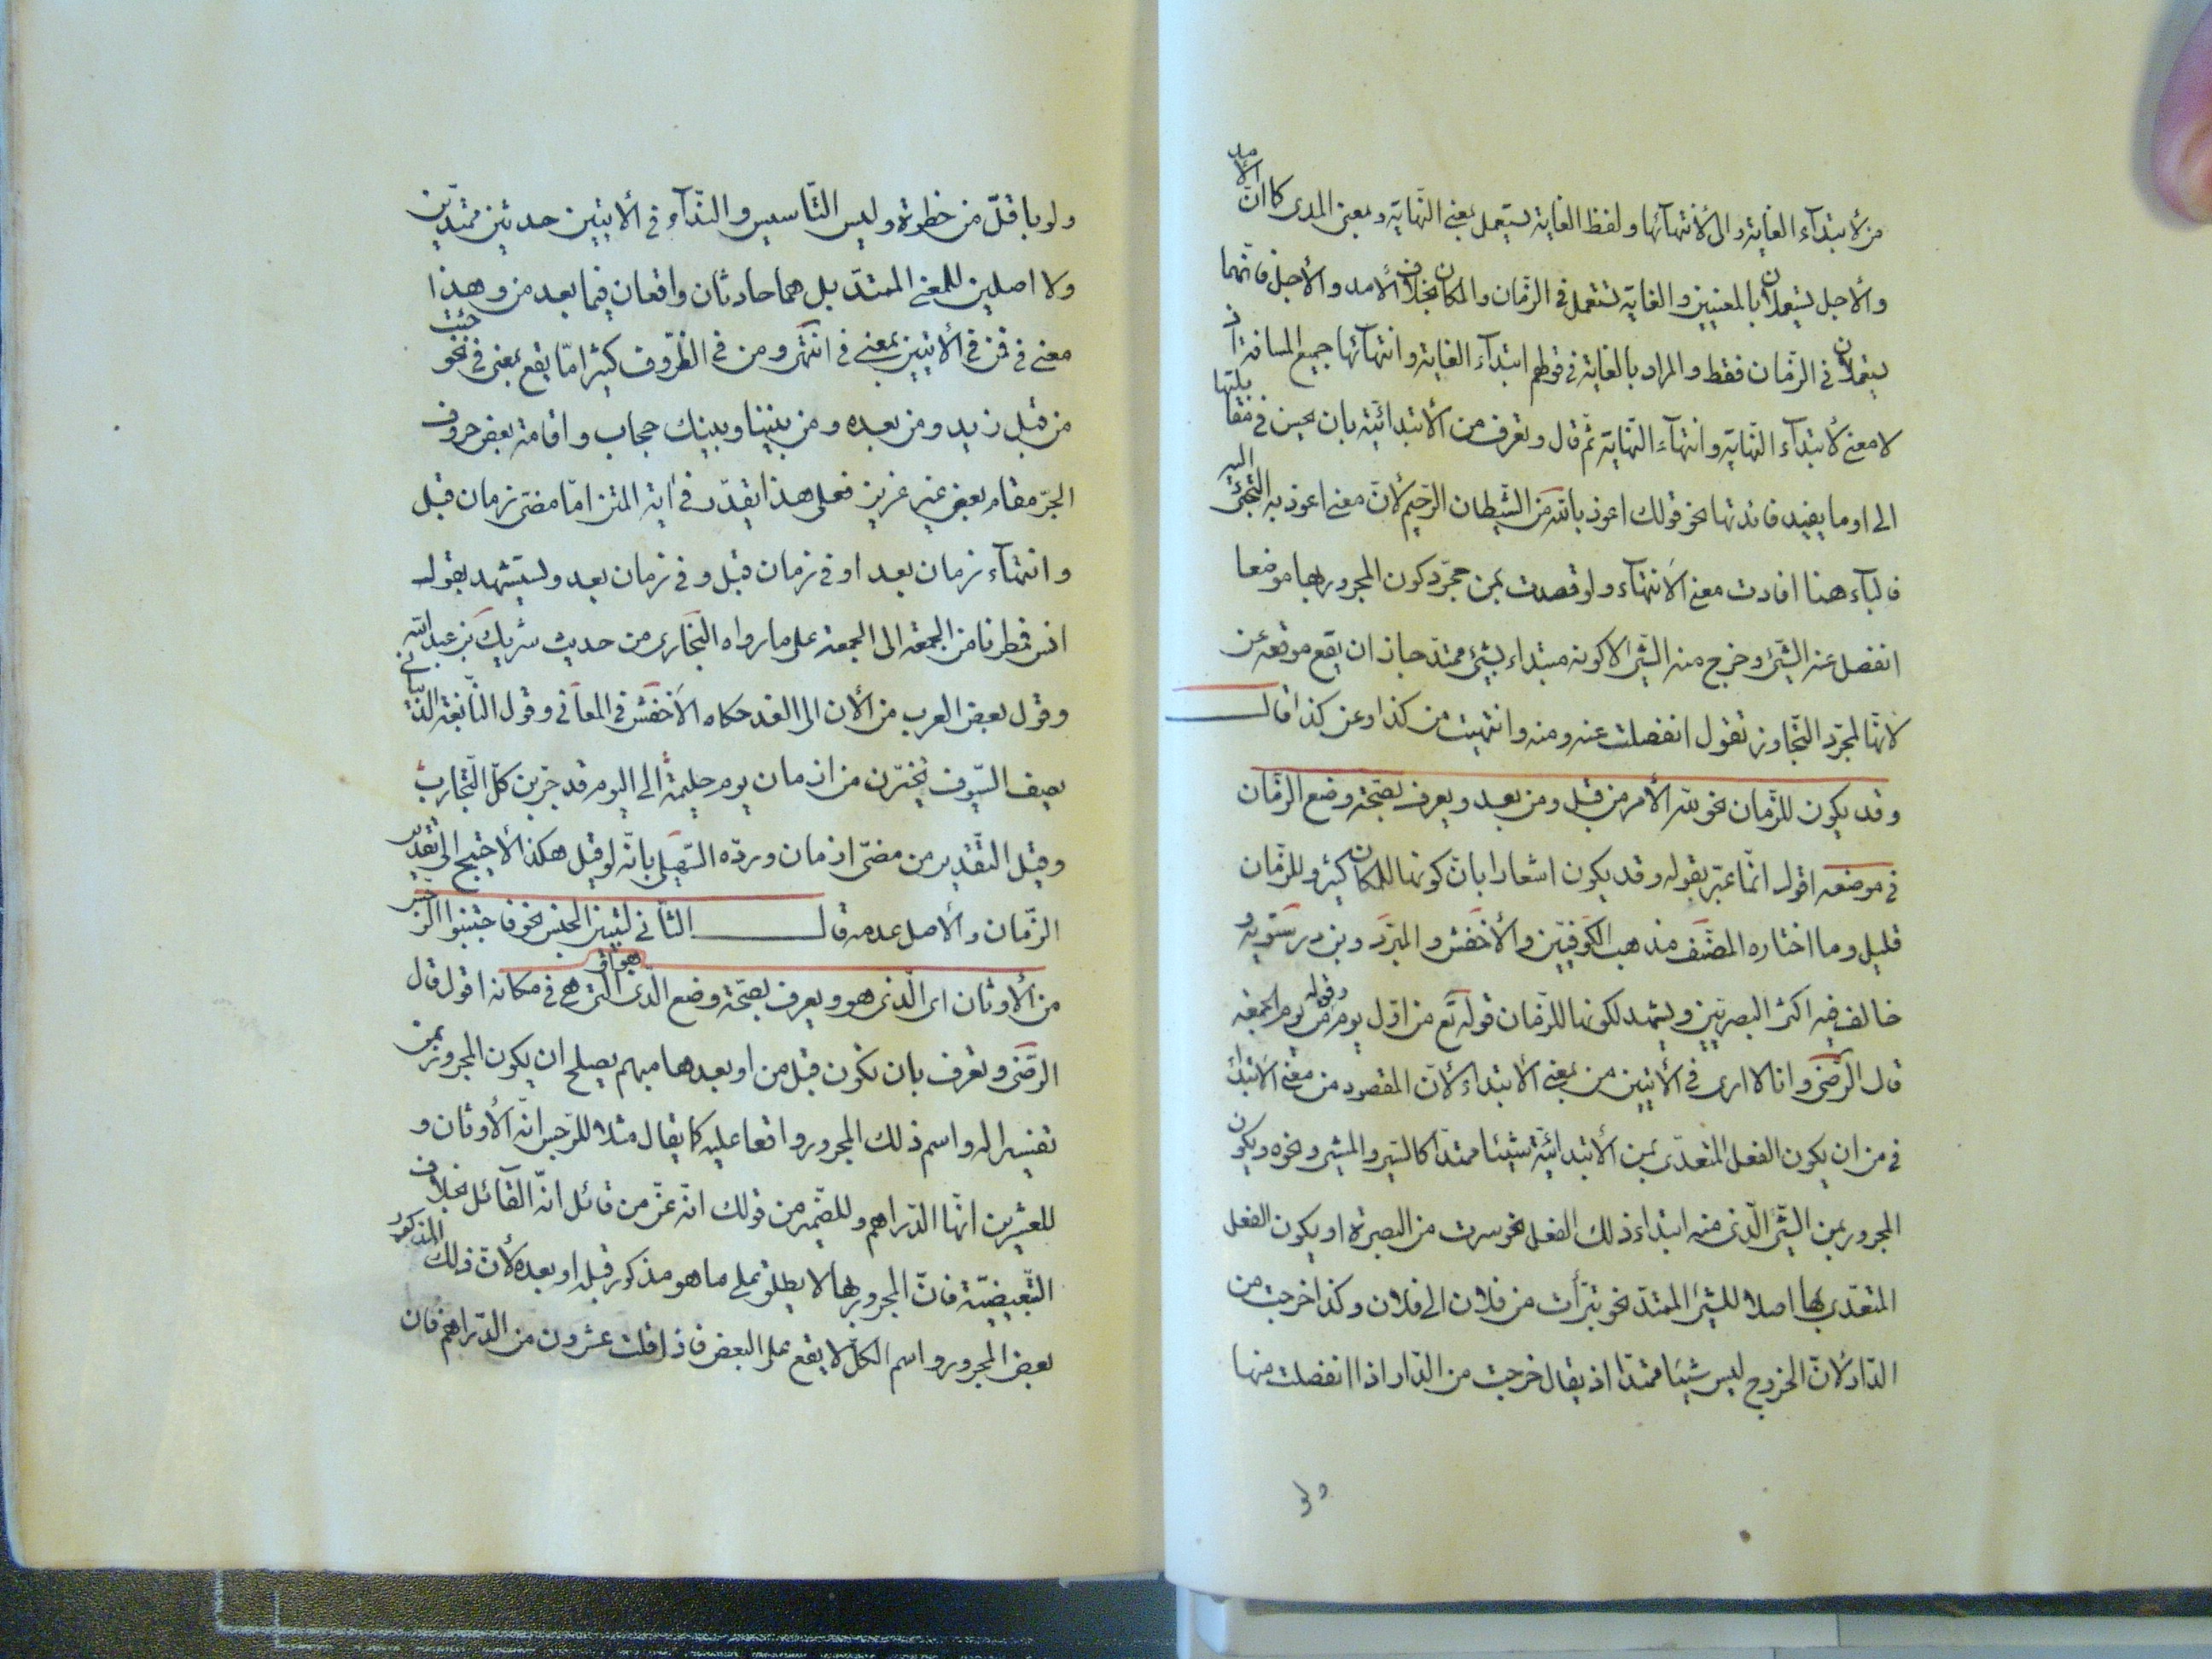 من لأبتدآء الغاية والى لأنتهآئها ولفظ الغاية يستعمل بمعنى النّهاية وبمعنى المدى كما انّ الأمد
والأجل يستعملان بالمعنيين والغاية تستعمل فى الزّمان والمكان بخلاف الأمد والأجل فانّهما
يستعملان فى الزّمان فقط والمراد بالغاية فى قولهم ابتدآء الغاية وانتهآئها جميع المسافة اذ
لا معنى لأبتدآء النّهاية وانتهآء النّهاية ثمّ قال وتعرف من الأبتدائيّة بان يحسن فى مقابلتها
الى او ما يفيد فائدتها نحو قولك اعوذ بالله من الشّيطان الرّجيم لأنّ معنى اعوذ به التجئ اليه
فالبآء هنا افادت معنى الأنتهآء ولو قصدت بمن مجرّد كون المجرور بها موضعا
انفصل عنه الشّئ وخرج منه الشّئ لا كونه مبتداء لشئ ممتدّ جاز ان يقع موقعه عن
لأنّها لمجرّد التّجاوز تقول انفصلت عنه ومنه وانتهيت من كذا وعن كذا قال
وقد يكون للزّمان نحو لله الأمر من قبل ومن بعد ويعرف بصحّة وضع الزّمان
فى موضعه اقول انّما عبّر بقوله وقد يكون اشعارا بانّ كونها للمكان كثير وللزّمان
قليل وما اختاره المصنّف مذهب الكوفيّين والأخفش والمبرّد وبن درستويه
خالف فيه اكثر البصريّين ويشهد لكونها للزّمان قوله تع من اوّل يوم وقوله من يوم الجمعة
قال الرّضى وانا لا ارى فى الأيتين من بمعنى الأبتداء لأنّ المقصود من معنى الأبتداء
فى من ان يكون الفعل المتعدّى بمن الأبتدائيّة شيئا ممتدّا كالسّير والمشى ونحوه ويكون
المجرور بمن الشّئ الّذى منه ابتداء ذلك الفعل نحو سرت من البصرة او يكون الفعل
المتعدّى بها اصلا للشّئ الممتدّ نحو تبرّأت من فلان الى فلان وكذا خرجت من
الدّار لأنّ الخروج ليس شيئا ممتدّا اذ يقال خرجت من الدّار اذا انفصلت منها
ولو
ولو باقلّ من خطوة وليس التّاسيس والنّدآء فى الأيتين حدثين ممتدّين
ولا اصلين للمعنى الممتدّ بل هما حادثان واقعان فيما بعد من وهذا
معنى فى فمن فى الأيتين بمعنى فى انتهى ومن فى الظّروف كثيرا مّا يقع بمعنى فى نحو جئت
من قبل زيد ومن بعده ومن بيننا وبينك حجاب واقامة بعض حروف
الجرّ مقام بعض غير عزيز فعلى هذا يقدّر فى اية المتن امّا مضىّ زمان قبل
وانتهآء زمان بعد او فى زمان قبل وفى زمان بعد ويستشهد بقول
انس فمطرنا من الجمعة الى الجمعة على ما رواه البخارى من حديث شريك بن عبد الله
وقول بعض العرب من الأن الى الغد حكاه الأخفش فى المعانى وقول النّابغة الذّبيانى
يصف السّيوف تخيّرن من ازمان يوم حليمة الى اليوم قد جرّبن كلّ التّجارب
وقيل التقدير من مضىّ ازمان وردّه السّهيلى بانّه لو قيل هكذا لأحتيج الى تقدير
الزّمان والأصل عدمه قال الثّانى لتبيين الجنس نحو فاجتنبوا الرّجس
من الأوثان اى الّذى هو ويعرف بصحّة وضع الّذى هو او الّتى هى فى مكانه اقول قال
الرّضى وتعرف بان تكون قبل من او بعدها مبهم يصلح ان يكون المجرور بمن
تفسيرا له واسم ذلك المجرور واقعا عليه كما يقال مثلا للرّجس انّه الأوثان و
للعشرين انّها الدّراهم وللضّمير من قولك انّه عزّ من قائل انّه القآئل بخلاف
التّبعيضيّة فانّ المجرور بها لا يطلق على ما هو مذكور قبله او بعده لأنّ ذلك المذكور
بعض المجرور واسم الكلّ لا يقع على البعض فاذا قلت عشرون من الدّراهم فان